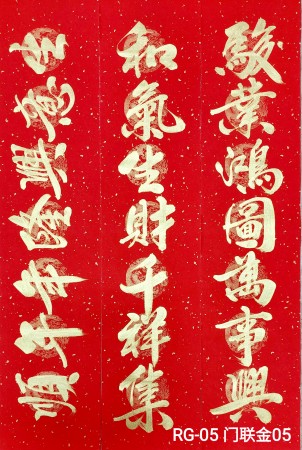 駿業鴻圖萬事興
和氣生財千祥集
生意興隆年年順
RG-05 门联金05